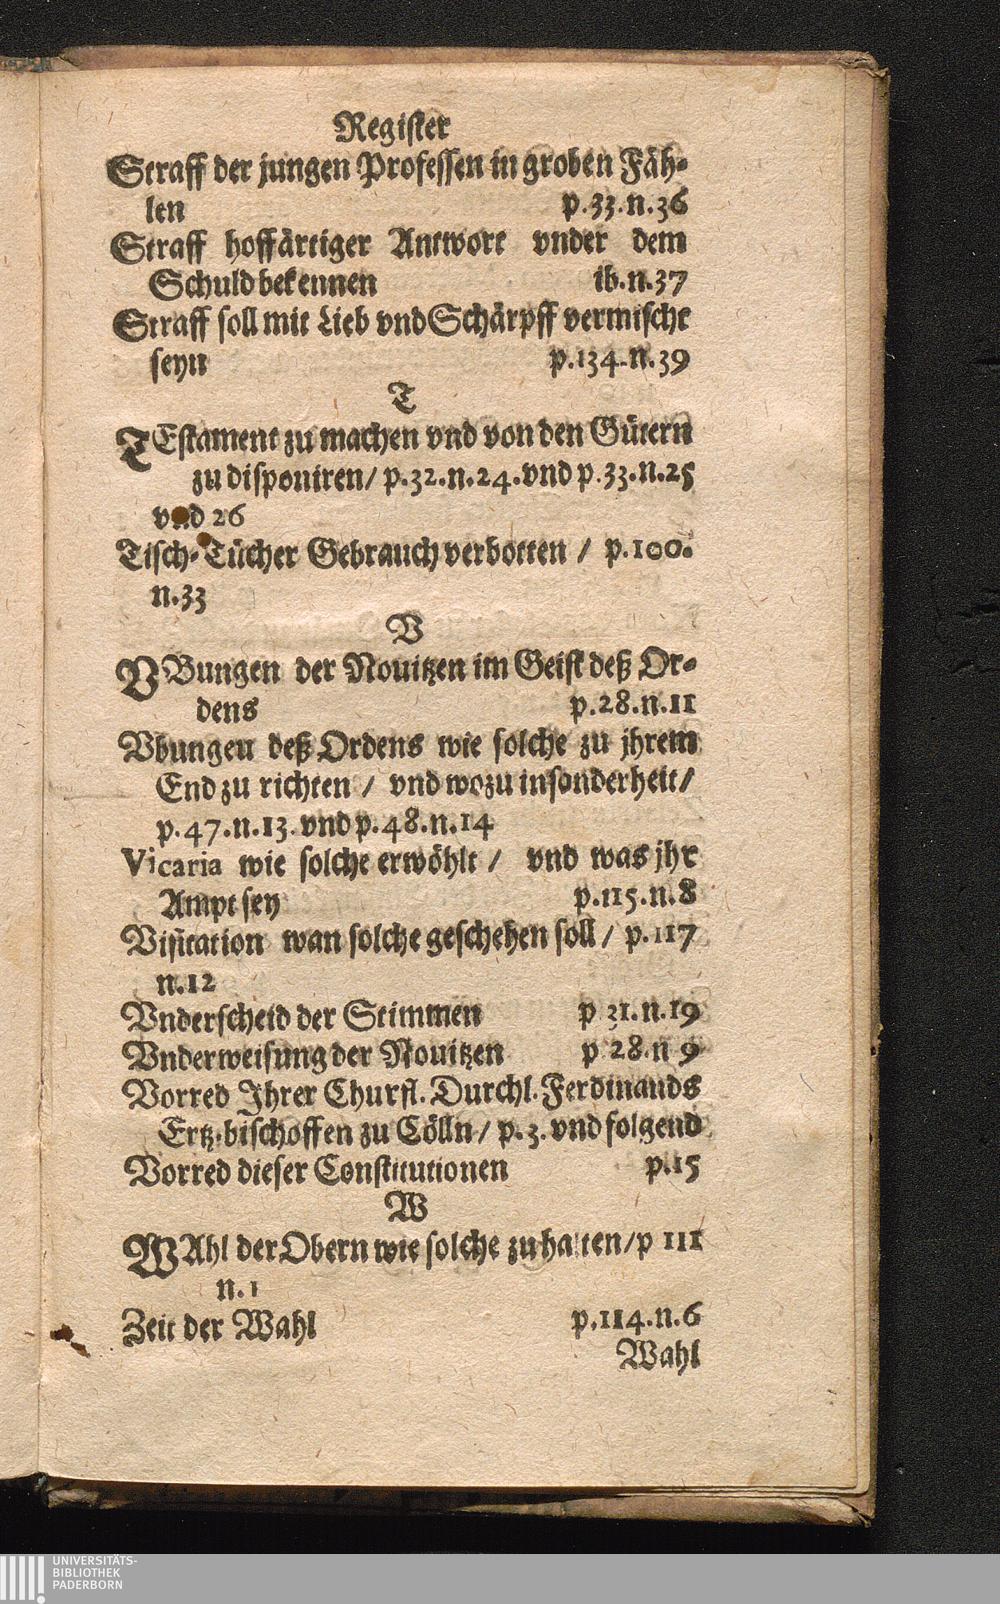 Register
Straff der jungen Professen in groben Fäh-
len p.33.n.36
Straff hoffärtiger Antwort vnder dem
Schuld bekennen ib.n.37
Straff soll mit Lieb vnd Schärpff vermischt
seyn p.134.n.39
T
TEstament zu machen vnd von den Gütern
zu disponiren/ p.32.n.24.vnd p.33.n.25
vnd 26
Tisch-Tücher Gebrauch verbotten / p.100.
n.33
V
VBungen der Nouitzen im Geist deß Or-
dens p.28.n.11
Vbungen deß Ordens wie solche zu jhrem
End zu richten / vnd wozu insonderheit/
p.47.n.13.vnd p.48.n.14
Vicaria wie solche erwöhlt / vnd was jhr
Ampt sey p.115.n.8
Visitation wan solche geschehen soll / p.117
n.12
Vnderscheid der Stimmen p 31.n.19
Vnderweisung der Nouitzen p 28.n 9
Vorred Ihrer Churfl. Durchl. Ferdinands
Ertz-bischoffen zu Cölln/ p.3.vnd folgend
Vorred dieser Constitutionen p.15
W
WAhl der Obern wie solche zu halten/p 111
n.1
Zeit der Wahl p.114.n.6
Wahl
UNIVERSITÄTS-
BIBLIOTHEK
PADERBORN